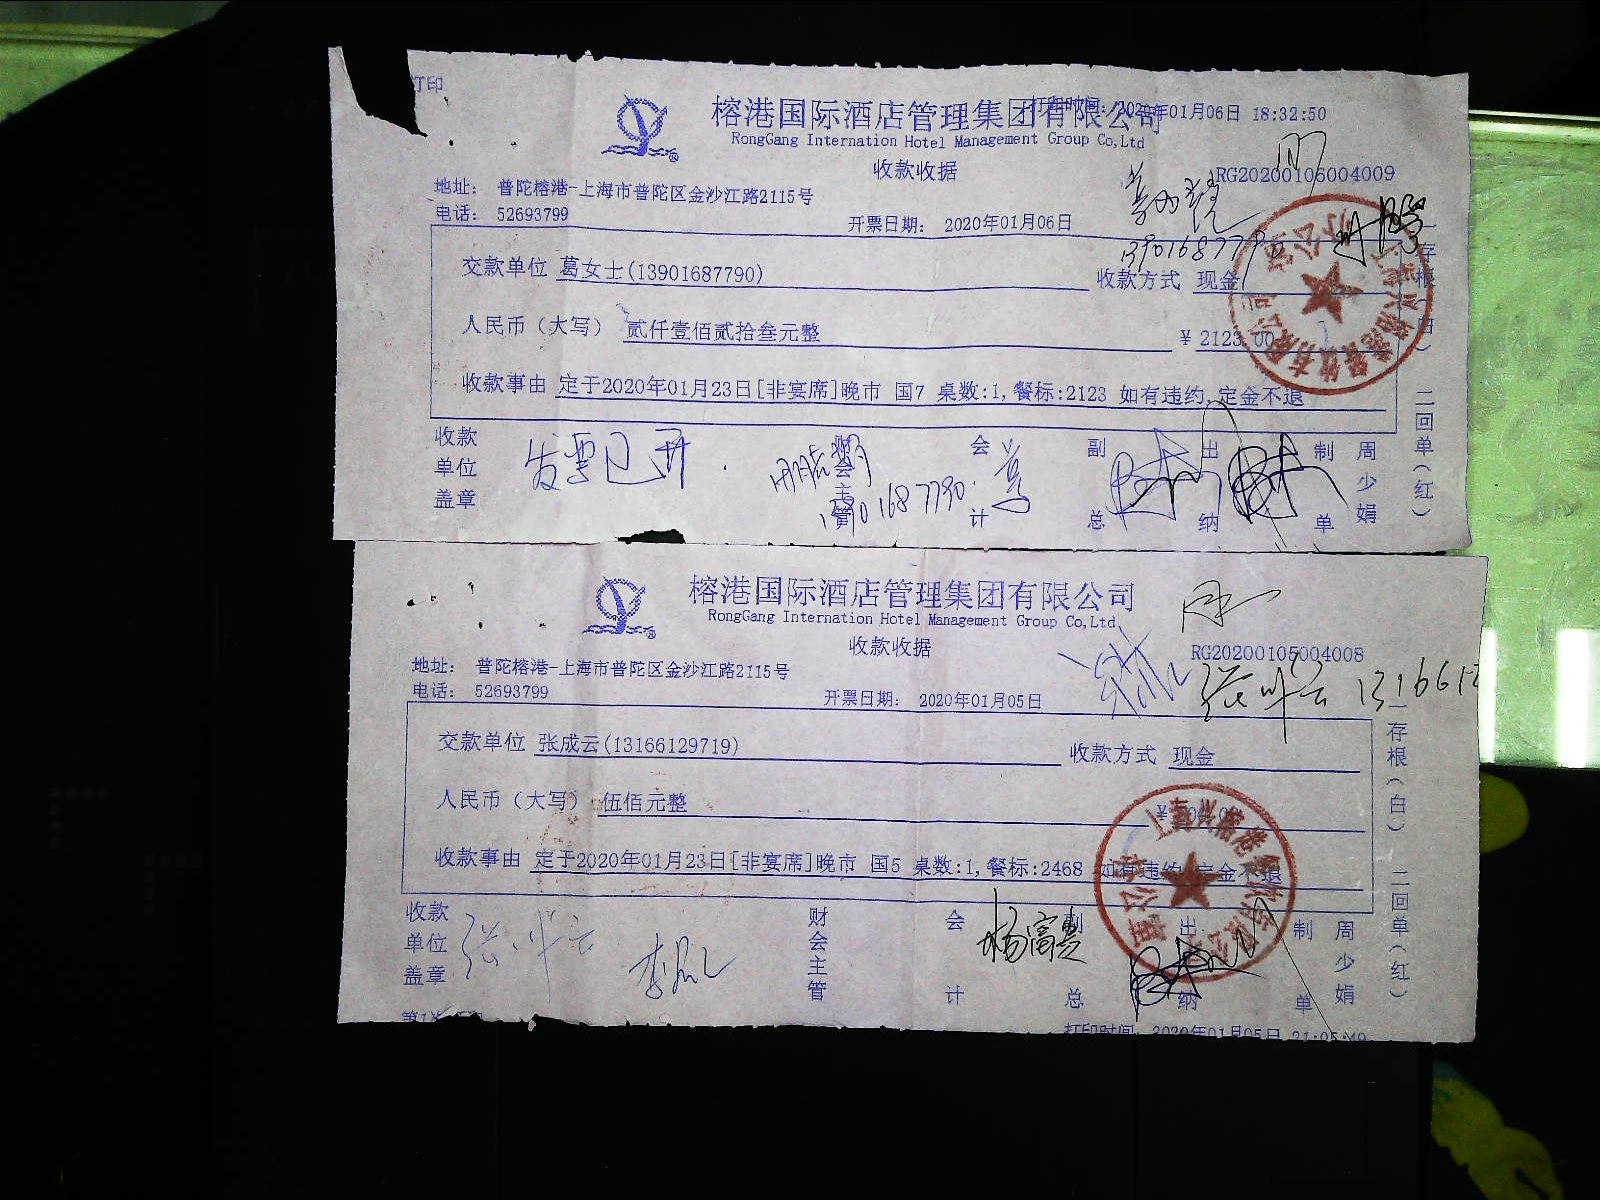 打印
打印时间: 2020年01月06日 18:32:50
榕港国际酒店管理集团有限公司
RongGang Internation Hotel Management Group Co,Ltd
收款收据
RG20200106004009
地址: 普陀榕港-上海市普陀区金沙江路2115号
电话: 52693799
开票日期: 2020年01月06日
13901687790
交款单位 葛女士(13901687790) 收款方式 现金
人民币（大写） 贰仟壹佰贰拾叁元整 ¥ 2123.00
收款事由 定于2020年01月23日[非宴席]晚市 国7 桌数:1,餐标:2123 如有违约,定金不退
一存根(白) 二回单(红)
收款单位盖章 发票已开. 会主管 会计 副总 出纳 制单 周少娟
13901687790.
榕港国际酒店管理集团有限公司
RongGang Internation Hotel Management Group Co,Ltd
收款收据
RG20200105004008
地址: 普陀榕港-上海市普陀区金沙江路2115号
电话: 52693799
开票日期: 2020年01月05日
交款单位 张成云(13166129719) 收款方式 现金
人民币（大写） 伍佰元整 ¥
收款事由 定于2020年01月23日[非宴席]晚市 国5 桌数:1,餐标:2468 如有违约,定金不退
一存根(白) 二回单(红)
收款单位盖章 财会主管 会计 副总 出纳 制单 周少娟
打印时间: 2020年01月05日 21:05:49